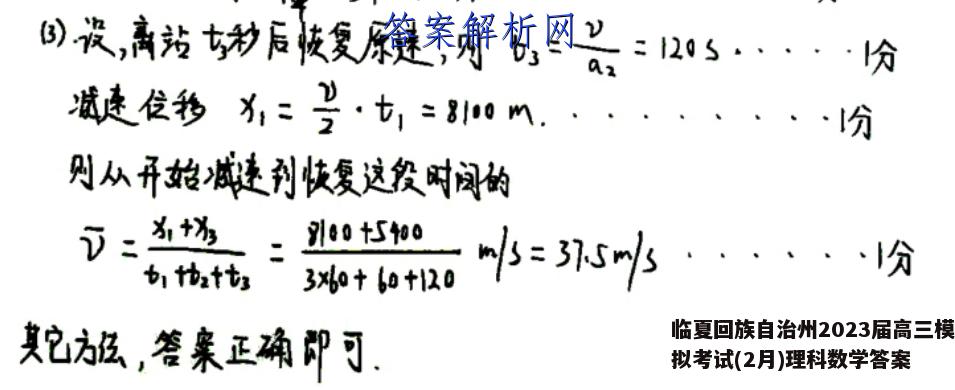 (3) 设,离站 t₃秒后恢复原速,则 t₃ = v/a₂ = 120 s ······ 1分
答案解析网
减速位移 x₁ = v/2 · t₁ = 8100 m. ········· 1分
则从开始减速到恢复这段时间的
v̄ = (x₁+x₃)/(t₁+t₂+t₃) = (8100+5400)/(3×60+60+120) m/s = 37.5 m/s ······ 1分
其它方法,答案正确即可.
临夏回族自治州2023届高三模
拟考试(2月)理科数学答案